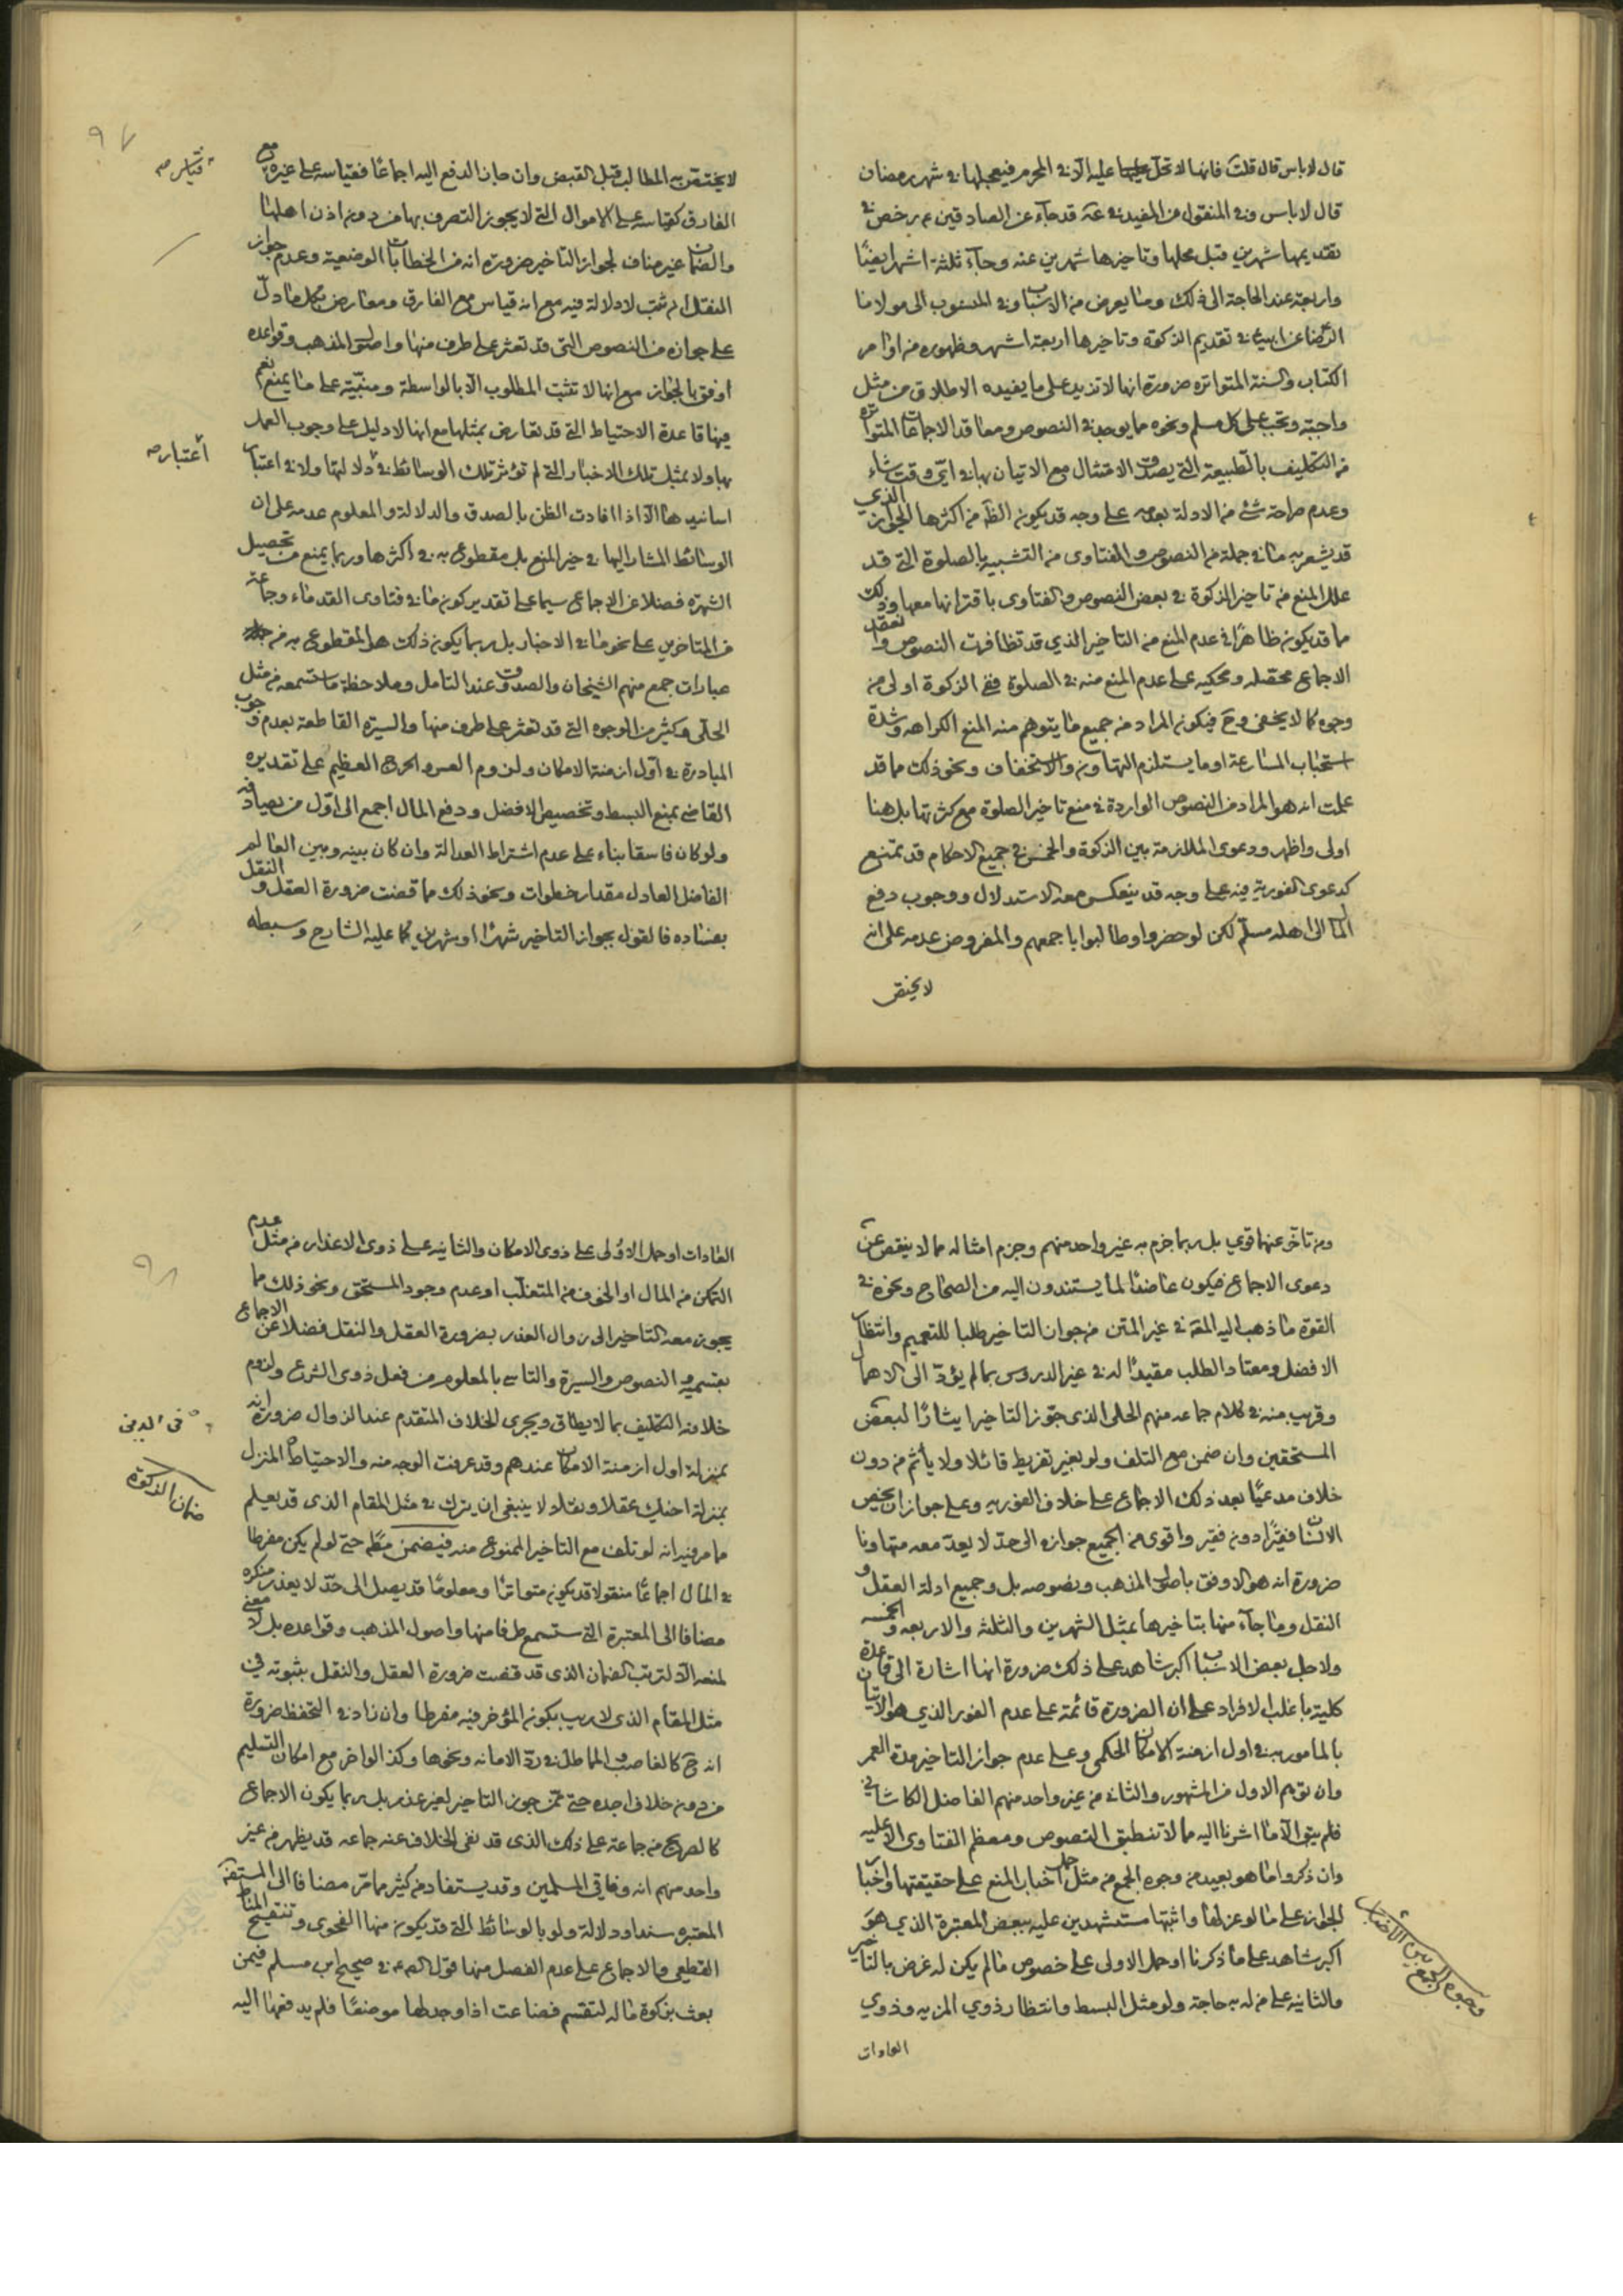 قال لا باس قال قلت فانها لا تحل عليه الا في المحرم فيعجلها في شهر رمضان
قال لا باس وفي المنقول من المفيد في عه قد جاء عن الصادقين ع م رخص في
تقديمها شهرين قبل محلها وتاخيرها شهرين عنه وجاء ثلثة اشهر ايضًا
واربعة عند الحاجة الى ذلك وما يعرض من الاسباب وفي المنسوب الى مولانا
الرضا عن ابيه في تقديم الزكوة وتاخيرها اربعة اشهر وظهوره من اوامر
الكتاب والسنة المتواتره ضرورة انها لا تزيد على ما يفيده الاطلاق من مثل
واجبة وتجب على كل مسلم ونحوه مما يوجد في النصوص ومعاقد الاجماعات المتواتره
في التكليف بالطبيعة التي يصدق الامتثال مع الاتيان بها في اي وقت شاء
وعدم صراحة شئ من الادلة بعدمه على وجه قد يكون الظ من اكثرها الجواز الذي
قد يشعر به ما في جملة من النصوص والفتاوى من التشبيه بالصلوة التي قد
علل المنع من تاخير الزكوة في بعض النصوص والفتاوى باقترانها معها وذلك
مما قد يكون ظاهرًا في عدم المنع من التاخير الذي قد تظافرت النصوص وانعقد
الاجماع محصله ومحكيه على عدم المنع منه في الصلوة ففي الزكوة اولى من
وجوه كما لا يخفى وح فيكون المراد من جميع ما يتوهم منه المنع الكراهه وشدة
استحباب المسارعة او ما يستلزم التهاون والاستخفاف ونحو ذلك مما قد
علمت انه هو المراد من النصوص الواردة في منع تاخير الصلوة مع كثرتها بل هنا
اولى واظهر ودعوى الملازمة بين الزكوة والخمس في جميع الاحكام قد تمتنع
كدعوى الفورية فيه على وجه قد ينعكس معه الاستدلال ووجوب دفع
المال الى اهله مسلم لكن لو حضروا وطالبوا باجمعهم والمفروض عدمه على انه
لا يختص
٩٧
لا يختص به المطالب قبل القبض وان جاز الدفع اليه اجماعًا فقياسه على غيره مع
قياس صه
الفارق كقياسه على الاموال التي لا يجوز التصرف بها من دون اذن اهلها
والضمان غير مناف لجواز التاخير ضرورة انه من الخطابات الوضعية وعدم جواز
النقل ان ثبت لا دلالة فيه مع انه قياس مع الفارق ومعارض بكل ما دل
على جوازه من النصوص التي قد تعثر على طرف منها واصول المذهب وقواعده
اوفق بالجواز مع انها لا تثبت المطلوب الا بالواسطة ومبنية على ما يمنع نعم
فيها قاعدة الاحتياط التي قد تعارض بمثلها مع انها لا دليل على وجوب العمل
بها ولا بمثل تلك الاخبار التي لم تؤثر تلك الوسائط في دلالتها ولا في اعتبار
اعتبار صه
اسانيدها الا اذا افادت الظن بالصدق والدلالة والمعلوم عدمه على ان
الوسائط المشار اليها في حيز المنع بل مقطوع به في اكثرها وربما يمنع من تحصيل
الشهرة فضلا عن الاجماع سيما على تقدير كون ما في فتاوى القدماء وجماعة
من المتاخرين على نحو ما في الاخبار بل ربما يكون ذلك هو المقطوع به من
عبارات جمع منهم الشيخان والصدوق عند التامل وملاحظة ما ستسمعه من مثل
الحلي وكثير من الوجوه التي قد تعثر على طرف منها والسيرة القاطعة بعدم وجوب
المبادرة في اول ازمنة الامكان ولزوم العسر والحرج العظيم على تقديره
القاضي بمنع البسط وتخصيص الافضل ودفع المال اجمع الى اول من يصادفه
ولو كان فاسقا بناء على عدم اشتراط العدالة وان كان بينه وبين العالم
الفاضل العادل مقدار خطوات ونحو ذلك مما قضت ضرورة العقل والنقل
بفساده فالقول بجواز التاخير شهرًا او شهرين كما عليه الشارح وسبطه
ومن تاخر عنهما قوي بل ربما جزم به غير واحد منهم وجزم امثاله مما لا ينقص عن
دعوى الاجماع فيكون عاضدًا لما يستندون اليه من الصحاح ونحوه في
القوة ما ذهب اليه المة في غير المتن من جواز التاخير طلبا للتعميم وانتظار
الافضل ومعتاد الطلب مقيدًا له في غير الدروس بما لم يؤد الى الاهمال
وقريب منه في كلام جماعه منهم الحلي الذي جوز التاخير ايثارًا لبعض
المستحقين وان ضمن مع التلف ولو بغير تفريط قائلا ولا يأثم من دون
خلاف مدعيًا بعد ذلك الاجماع على خلاف الفوريه وعلى جواز ان يخص
الانسان فقيرًا دون فقير واقوى من الجميع جوازه الى حد لا يعد معه متهاونا
ضرورة انه هو الاوفق باصول المذهب ونصوصه بل وجميع ادلة العقل و
النقل وما جاء منها بتاخيرها بمثل الشهرين والثلثه والاربعه والخمسه
ولاجل بعض الاسباب اكبر شاهد على ذلك ضرورة انها اشارة الى قاعدة
كلية باغلب الافراد على ان الضرورة قائمة على عدم الفور الذي هو الاتيان
بالمامور به في اول ازمنة الامكان الحكمي وعلى عدم جواز التاخير مدة العمر
وان توهم الاول من المشهور والثاني من غير واحد منهم الفاضل الكاشاني
فلم يبق الا ما اشرنا اليه مما لا تنطبق النصوص ومعظم الفتاوى الا عليه
وان ذكروا ما هو بعيد من وجوه الجمع من مثل حمل اخبار المنع على حقيقتها واخبار
الجواز على ما لو عزلها واثبتها مستشهدين عليه ببعض المعتبرة الذي هو
وجوه الجمع بين الأخبار
اكبر شاهد على ما ذكرنا او حمل الاولى على خصوص ما لم يكن له غرض بالتاخير
والثانيه على من له به حاجة ولو مثل البسط وانتظار ذوي المزيه وذوي
العادات
٩٨
العادات او حمل الاولى على ذوي الامكان والثانيه على ذوي الاعذار من مثل عدم
التمكن من المال او الخوف من المتغلب او عدم وجود المستحق ونحو ذلك مما
يجوز معه التاخير الى زوال العذر بضرورة العقل والنقل فضلا عن الاجماع
بقسميه والنصوص والسيرة والتاسي بالمعلوم من فعل ذوي الشرع ولزوم
خلافه التكليف بما لا يطاق ويجري الخلاف المتقدم عند الزوال ضرورة انه
بمنزلة اول ازمنة الامكان عندهم وقد عرفت الوجه منه والاحتياط المنزل
بمنزلة اخيك عقلا ونقلا لا ينبغي ان يترك في مثل المقام الذي قد يعلم
ضمان الزكوة
مما مر فيه انه لو تلف مع التاخير الممنوع منه فيضمن مطلقا حتى لو لم يكن مفرطا
في المال اجماعًا منقولا قد يكون متواترًا ومعلومًا قد يصل الى حد لا يعذر منكره
مضافا الى المعتبرة التي ستسمع طرفا منها واصول المذهب وقواعده بل لا معنى
لمنعه الا لترتب الضمان الذي قد قضت ضرورة العقل والنقل بثبوته في
مثل المقام الذي لا ريب بكون المؤخر فيه مفرطا وان زاد في التحفظ ضرورة
انه ح كالغاصب والمماطل في رد الامانه ونحوها وكذا لو اخر مع امكان التسليم
من دون خلاف اجده حتى ممن جوز التاخير لغير عذر بل ربما يكون الاجماع
كالصريح من جماعة على ذلك الذي قد نفى الخلاف عنه جماعه قد يظهر من غير
واحد منهم انه وفاقي المسلمين وقد يستفاد من كثير مما مر مضافا الى المستفيضة
المعتبره سندا ودلالة ولو بالوسائط التي قد يكون منها الفحوى وتنقيح المناط
القطعي والاجماع على عدم الفصل منها قول الص ع في صحيح ابن مسلم فيمن
بعث بزكوة ماله لتقسم فضاعت اذا وجد لها موضعًا فلم يدفعها اليه